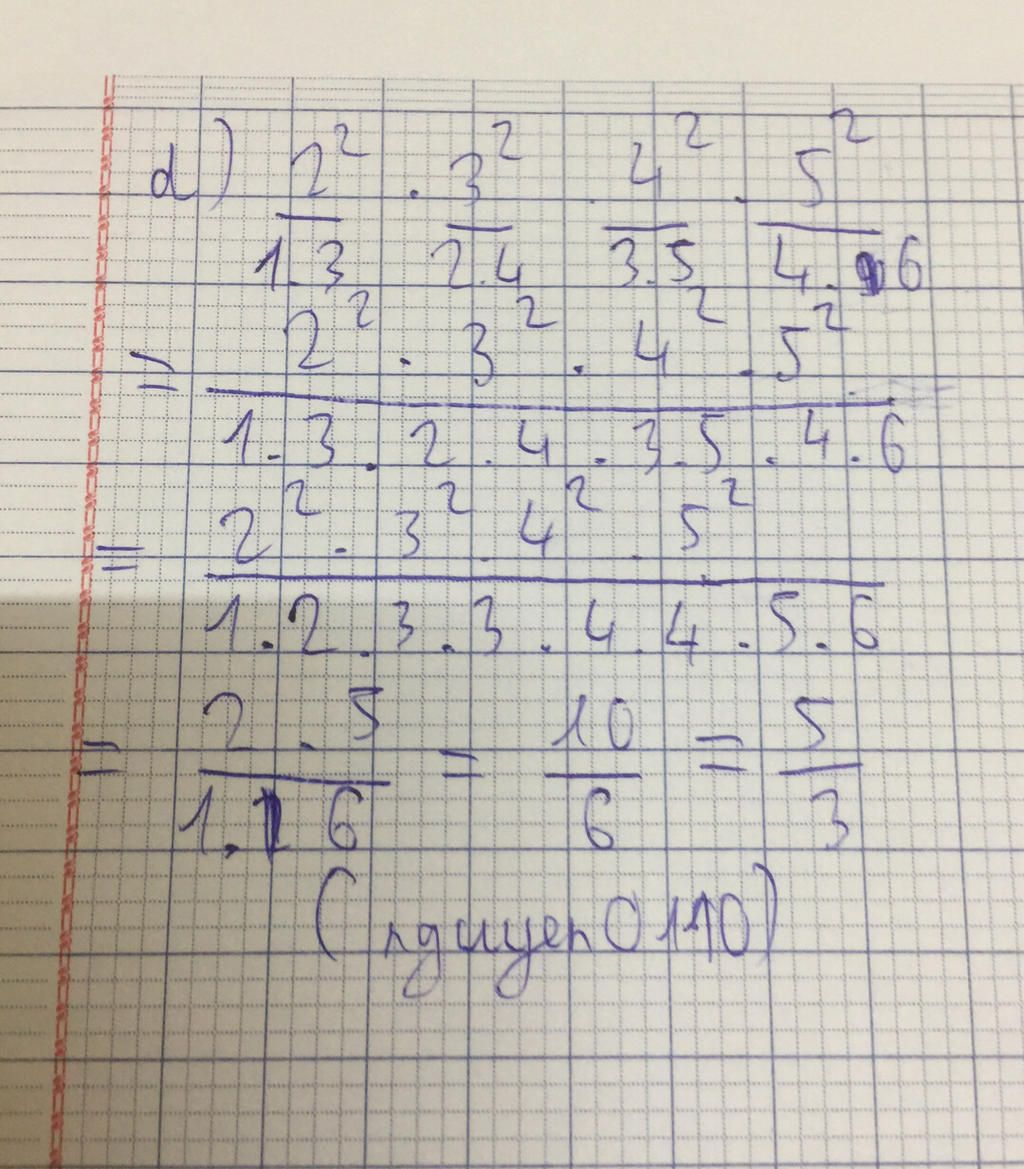 d) 2²/1.3 . 3²/2.4 . 4²/3.5 . 5²/4.6
= 2² . 3² . 4² . 5² / 1.3.2.4.3.5.4.6
= 2² . 3² . 4² . 5² / 1.2.3.3.4.4.5.6
= 2.5 / 1.6 = 10/6 = 5/3
(nguyen0110)